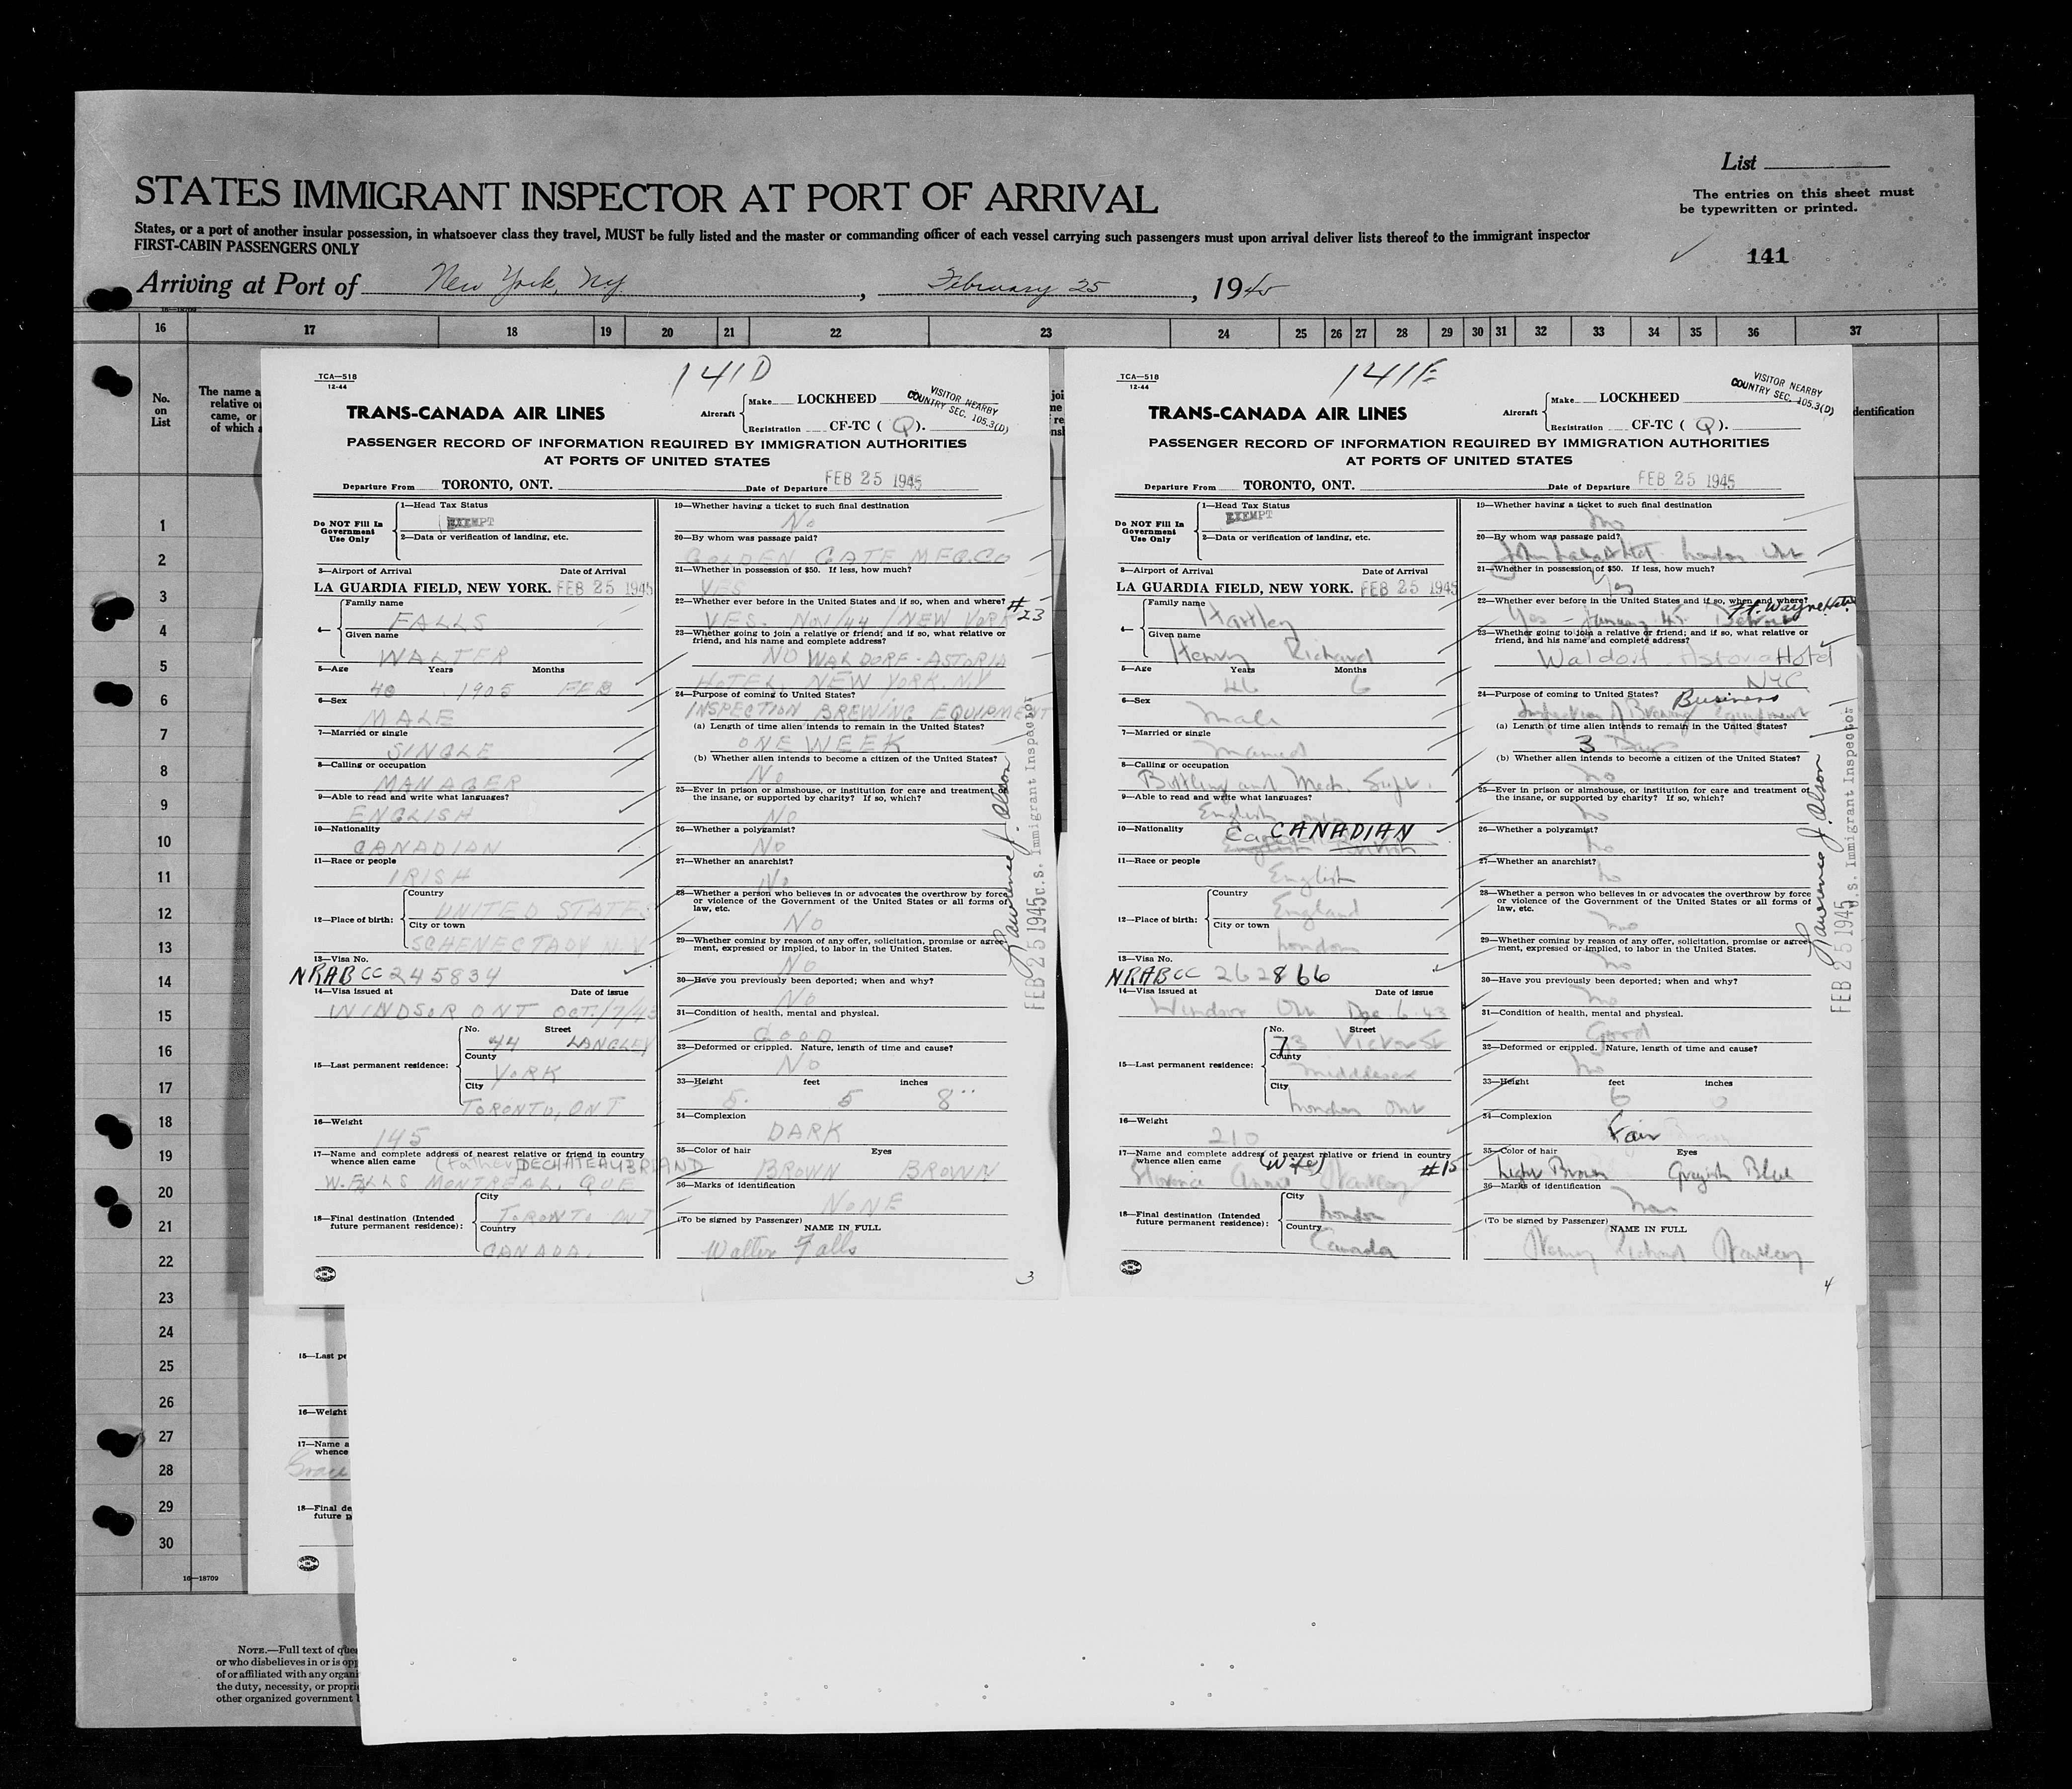 List
STATES IMMIGRANT INSPECTOR AT PORT OF ARRIVAL
The entries on this sheet must
be typewritten or printed.
States, or a port of another insular possession, in whatsoever class they travel, MUST be fully listed and the master or commanding officer of each vessel carrying such passengers must upon arrival deliver lists thereof to the immigrant inspector
FIRST-CABIN PASSENGERS ONLY
141
Arriving at Port of New York, N.Y. , February 25 , 1945
16—18709
16 17 18 19 20 21 22 23 24 25 26 27 28 29 30 31 32 33 34 35 36 37
No.
on
List
The name a
relative o
came, or
of which a
dentification
1
2
3
4
5
6
7
8
9
10
11
12
13
14
15
16
17
18
19
20
21
22
23
24
25
26
27
28
29
30
16—18709
TCA—518
12-44
141D
TRANS-CANADA AIR LINES
Aircraft
Make LOCKHEED
Registration CF-TC ( Q ).
VISITOR NEARBY
COUNTRY SEC. 105.3(D)
PASSENGER RECORD OF INFORMATION REQUIRED BY IMMIGRATION AUTHORITIES
AT PORTS OF UNITED STATES
Departure From TORONTO, ONT. Date of Departure FEB 25 1945
Do NOT Fill In
Government
Use Only
1—Head Tax Status
EXEMPT
2—Data or verification of landing, etc.
3—Airport of Arrival Date of Arrival
LA GUARDIA FIELD, NEW YORK. FEB 25 1945
4—
Family name
FALLS
Given name
WALTER
5—Age Years Months
40 1905 FEB
6—Sex
MALE
7—Married or single
SINGLE
8—Calling or occupation
MANAGER
9—Able to read and write what languages?
ENGLISH
10—Nationality
CANADIAN
11—Race or people
IRISH
12—Place of birth:
Country
UNITED STATES
City or town
SCHENECTADY N.Y
13—Visa No.
NRABCC 245834
14—Visa issued at Date of issue
WINDSOR ONT OCT/7/43
15—Last permanent residence:
No. Street
44 LANGLEY
County
YORK
City
TORONTO, ONT
16—Weight
145
17—Name and complete address of nearest relative or friend in country
whence alien came (Father) DECHATEAUBRIAND
W. FALLS MONTREAL, QUE
18—Final destination (Intended
future permanent residence):
City
TORONTO ONT
Country
CANADA.
19—Whether having a ticket to such final destination
No
20—By whom was passage paid?
GOLDEN GATE MFG. CO
21—Whether in possession of $50. If less, how much?
YES
22—Whether ever before in the United States and if so, when and where? #23
YES. NOV/44 / NEW YORK
23—Whether going to join a relative or friend; and if so, what relative or
friend, and his name and complete address?
NO WALDORF-ASTORIA
HOTEL, NEW YORK. N.Y
24—Purpose of coming to United States?
INSPECTION BREWING EQUIPMENT
(a) Length of time alien intends to remain in the United States?
ONE WEEK
(b) Whether alien intends to become a citizen of the United States?
No
25—Ever in prison or almshouse, or institution for care and treatment of
the insane, or supported by charity? If so, which?
No
26—Whether a polygamist?
No
27—Whether an anarchist?
No
28—Whether a person who believes in or advocates the overthrow by force
or violence of the Government of the United States or all forms of
law, etc.
No
29—Whether coming by reason of any offer, solicitation, promise or agree-
ment, expressed or implied, to labor in the United States.
No
30—Have you previously been deported; when and why?
No
31—Condition of health, mental and physical.
GOOD
32—Deformed or crippled. Nature, length of time and cause?
No
33—Height feet inches
5. 5 8"
34—Complexion
DARK
35—Color of hair Eyes
BROWN BROWN
36—Marks of identification
NONE
(To be signed by Passenger)
NAME IN FULL
Walter Falls
3
Lawrence J. Olson
FEB 25 1945 U.S. Immigrant Inspector
TCA—518
12-44
141E
TRANS-CANADA AIR LINES
Aircraft
Make LOCKHEED
Registration CF-TC ( Q ).
VISITOR NEARBY
COUNTRY SEC. 105.3(D)
PASSENGER RECORD OF INFORMATION REQUIRED BY IMMIGRATION AUTHORITIES
AT PORTS OF UNITED STATES
Departure From TORONTO, ONT. Date of Departure FEB 25 1945
Do NOT Fill In
Government
Use Only
1—Head Tax Status
EXEMPT
2—Data or verification of landing, etc.
3—Airport of Arrival Date of Arrival
LA GUARDIA FIELD, NEW YORK. FEB 25 1945
4—
Family name
Hartley
Given name
Henry Richard
5—Age Years Months
46 6
6—Sex
male
7—Married or single
married
8—Calling or occupation
Bottling and Mech. Supt.
9—Able to read and write what languages?
English only
10—Nationality
CANADIAN
English British
11—Race or people
English
12—Place of birth:
Country
England
City or town
London
13—Visa No.
NRABCC 262866
14—Visa issued at Date of issue
Windsor Ont Dec 6.43
15—Last permanent residence:
No. Street
73 Victor St
County
middlesex
City
London Ont
16—Weight
210
17—Name and complete address of nearest relative or friend in country
whence alien came (Wife) #15
Florence Annie Hartley
18—Final destination (Intended
future permanent residence):
City
London
Country
Canada
19—Whether having a ticket to such final destination
no
20—By whom was passage paid?
John Labatt Ltd. London Ont
21—Whether in possession of $50. If less, how much?
Yes
22—Whether ever before in the United States and if so, when and where?
Yes - January 45 Detroit
23—Whether going to join a relative or friend; and if so, what relative or
friend, and his name and complete address?
Waldorf Astoria Hotel
NYC
24—Purpose of coming to United States? Business
Inspection of Brewing equipment
(a) Length of time alien intends to remain in the United States?
3 Days
(b) Whether alien intends to become a citizen of the United States?
no
25—Ever in prison or almshouse, or institution for care and treatment of
the insane, or supported by charity? If so, which?
no
26—Whether a polygamist?
no
27—Whether an anarchist?
no
28—Whether a person who believes in or advocates the overthrow by force
or violence of the Government of the United States or all forms of
law, etc.
no
29—Whether coming by reason of any offer, solicitation, promise or agree-
ment, expressed or implied, to labor in the United States.
no
30—Have you previously been deported; when and why?
no
31—Condition of health, mental and physical.
Good
32—Deformed or crippled. Nature, length of time and cause?
no
33—Height feet inches
6 0
34—Complexion
Fair
35—Color of hair Eyes
Light Brown Grayish Blue
36—Marks of identification
(To be signed by Passenger)
NAME IN FULL
Henry Richard Hartley
4
Lawrence J. Olson
FEB 25 1945 U.S. Immigrant Inspector
15—Last pe
16—Weight
17—Name a
whence
Grace
18—Final de
future p
NOTE.—Full text of ques
or who disbelieves in or is opp
of or affiliated with any organi
the duty, necessity, or proprie
other organized government